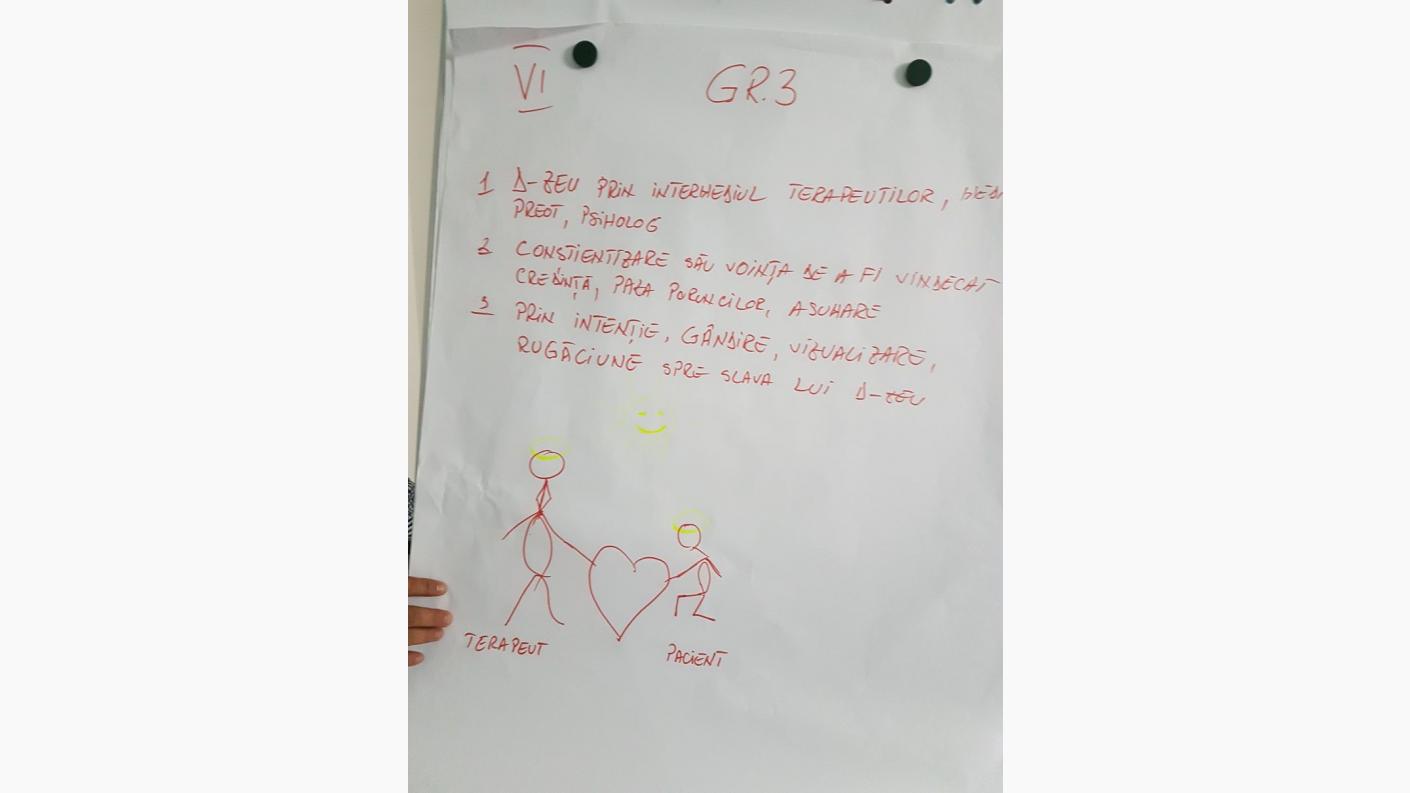 VI
GR.3
1 D-ZEU PRIN INTERMEDIUL TERAPEUTILOR,
PREOT, PSIHOLOG
2 CONSTIENTIZARE SĂU VOINȚA DE A FI VINDECAT
CREDINȚĂ, PAZA PORUNCILOR, ASUMARE
3 PRIN INTENȚIE, GÂNDIRE, VIZUALIZARE,
RUGĂCIUNE SPRE SLAVA LUI D-ZEU
TERAPEUT
PACIENT